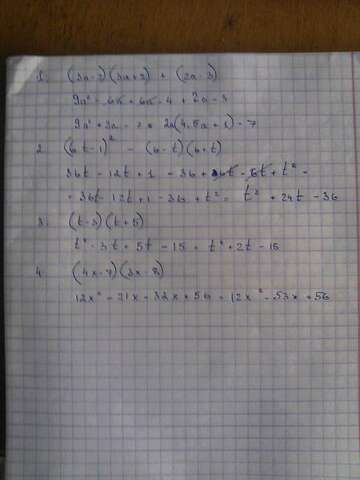 1. (3a-2)(3a+2) + (2a-3)
9a² - 6a + 6a - 4 + 2a - 3
9a² + 2a - 7 = 2a(4,5a + 1) - 7
2 (6t-1)² - (6-t)(6+t)
36t - 12t + 1 - 36 + 6t - 6t + t² =
= 36t - 12t + 1 - 36 + t² = t² + 24t - 36
3. (t-3)(t+5)
t² - 3t + 5t - 15 = t² + 2t - 15
4. (4x-7)(3x-8)
12x² - 21x - 32x + 56 = 12x² - 53x + 56